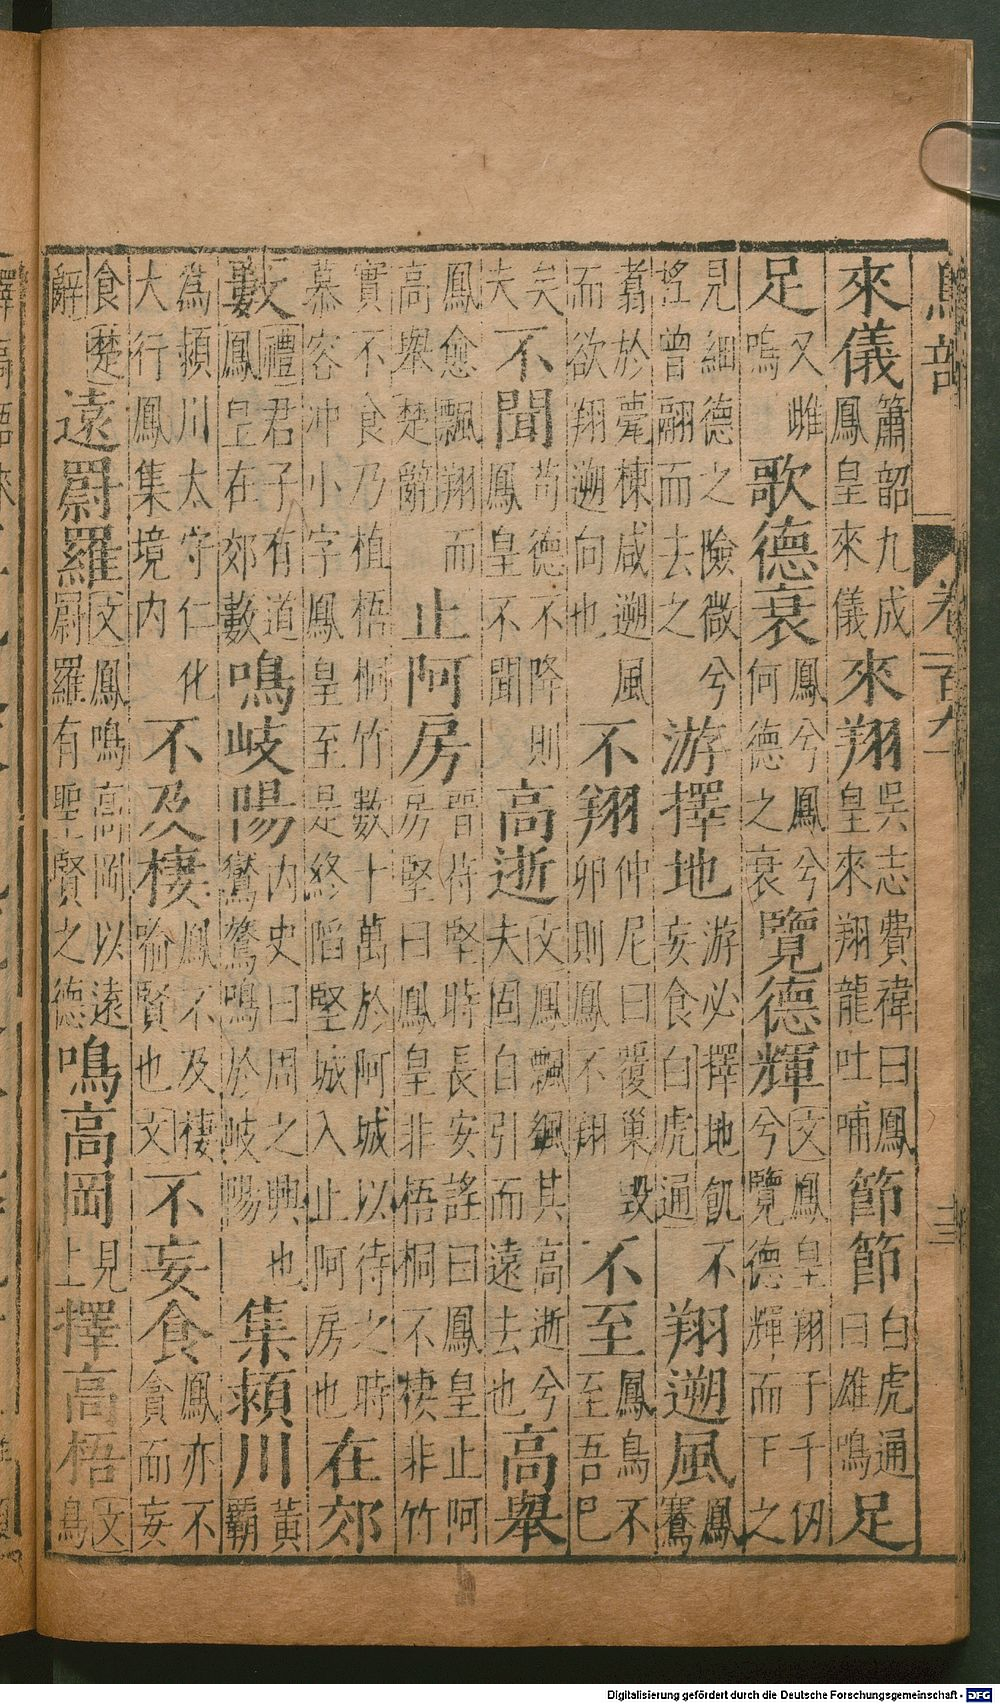 鳥部 卷一百九 十三
來儀簫韶九成鳳皇來儀來翔吳志費禕曰鳳皇來翔龍吐哺節節白虎通曰雄鳴足
足又雌鳴歌德衰鳳兮鳳兮何德之衰覽德輝文鳳皇翔于千仞兮覽德輝而下之
見細德之險微兮遙曾翮而去之游擇地游必擇地飢不妄食白虎通翔遡風鳳騫
翥於甍棟咸遡風而欲翔遡向也不翔仲尼曰覆巢毀卵則鳳不翔不至鳳鳥不至吾巳
矣夫不聞苟德不降則鳳皇不聞高逝文鳳飄飄其高逝兮夫固自引而遠去也高舉
鳳愈飄翔而高舉楚辭止阿房晉苻堅時長安謠曰鳳皇止阿房堅曰鳳皇非梧桐不棲非竹
實不食乃植梧桐竹數十萬於阿城以待之時慕容冲小字鳳皇至是終陷堅城入止阿房也在郊
藪禮君子有道鳳皇在郊藪鳴岐陽內史曰周之興也鸑鷟鳴於岐陽集頴川黃霸
為頴川太守仁化大行鳳集境內不及棲鳳不及棲喻賢也文不妄食鳳亦不貪而妄
食楚辭遠罻羅文鳳鳴高岡以遠罻羅有聖賢之德鳴高岡見上擇高梧文鳥
Digitalisierung gefördert durch die Deutsche Forschungsgemeinschaft - DFG